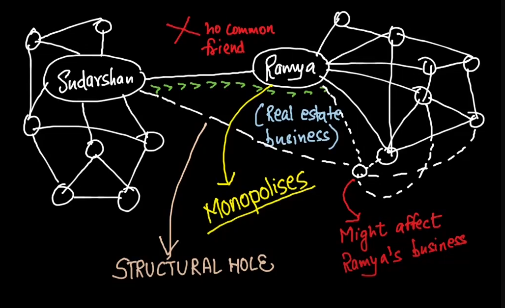 no common
friend
Sudarshan
Ramya
(Real estate
business)
Monopolises
STRUCTURAL HOLE
Might affect
Ramya's business